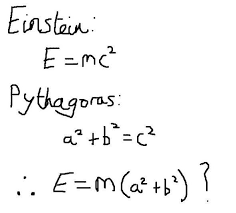 Einstein:
E = mc²
Pythagoras:
a² + b² = c²
∴ E = m(a² + b²) ?